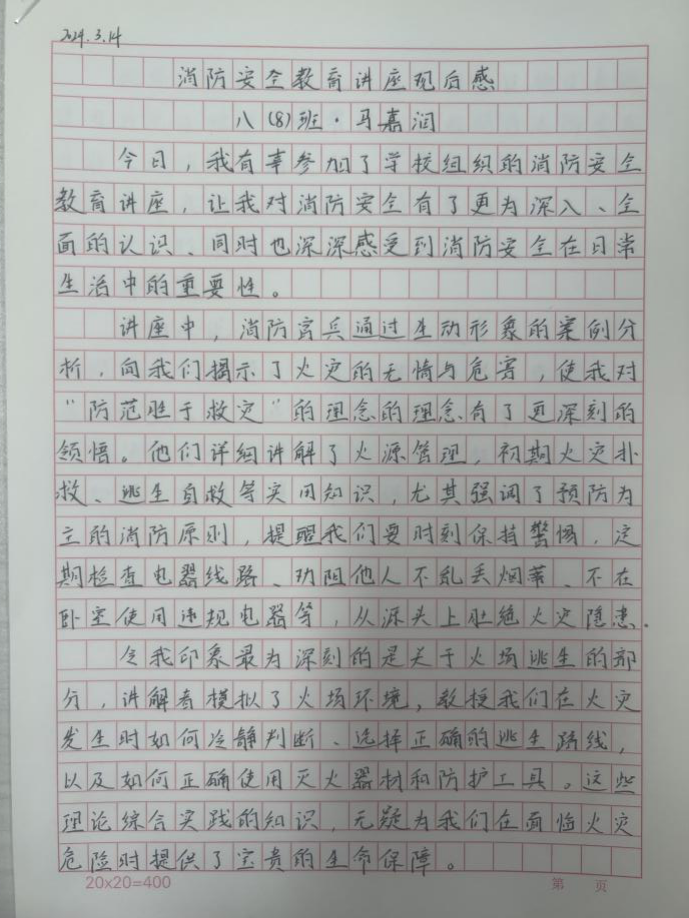 2024.3.14
消防安全教育讲座观后感
八(8)班·马嘉润
今日，我有幸参加了学校组织的消防安全
教育讲座，让我对消防安全有了更为深入、全
面的认识、同时也深深感受到消防安全在日常
生活中的重要性。
讲座中，消防官兵通过生动形象的案例分
析，向我们揭示了火灾的无情与危害，使我对
“防范胜于救灾”的理念的理念有了更深刻的
领悟。他们详细讲解了火源管理，初期火灾扑
救、逃生自救等实用知识，尤其强调了预防为
主的消防原则，提醒我们要时刻保持警惕，定
期检查电器线路、劝阻他人不乱丢烟蒂、不在
卧室使用违规电器等，从源头上杜绝火灾隐患.
令我印象最为深刻的是关于火场逃生的部
分，讲解者模拟了火场环境，教授我们在火灾
发生时如何冷静判断、选择正确的逃生路线，
以及如何正确使用灭火器材和防护工具。这些
理论综合实践的知识，无疑为我们在面临火灾
危险时提供了宝贵的生命保障。
20×20=400
第 页